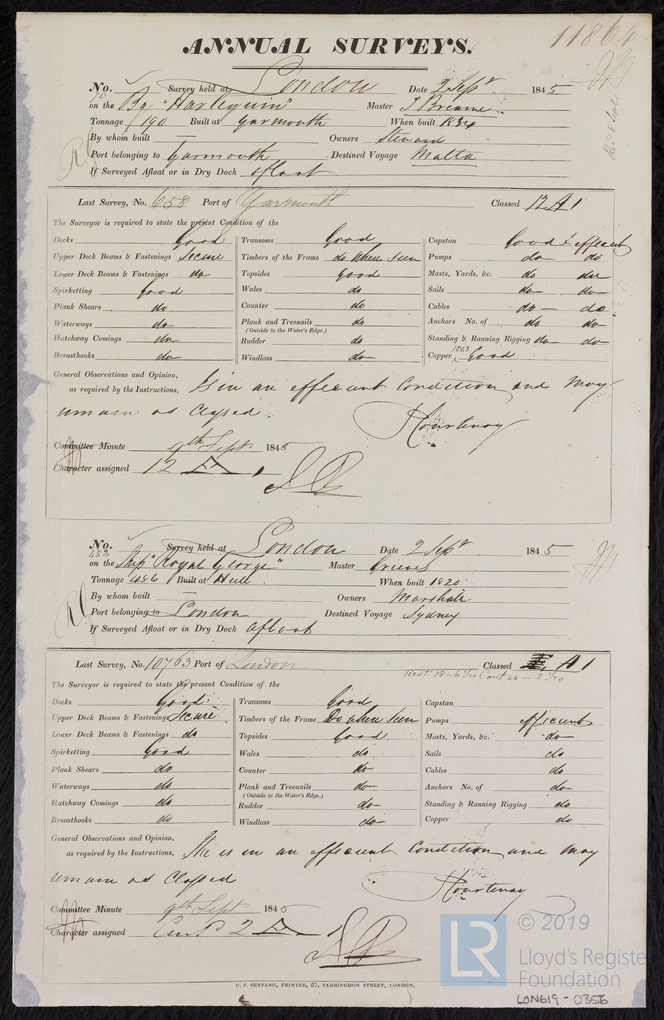 11864
ANNUAL SURVEYS.
No. Survey held at London Date 2 Sept 1845
on the Bg "Harlequin" Master J. Browne
Tonnage 190 Built at Yarmouth When built 1834
By whom built — Owners Steward
Port belonging to Yarmouth Destined Voyage Malta
If Surveyed Afloat or in Dry Dock afloat
Last Survey, No. 658 Port of Yarmouth Classed 12 A 1
The Surveyor is required to state the present Condition of the
Decks Good Transoms Good Capstan Good & efficient
Upper Deck Beams & Fastenings Secure Timbers of the Frame do when seen Pumps do do
Lower Deck Beams & Fastenings do Topsides Good Masts, Yards, &c. do do
Spirketting Good Wales do Sails do do
Plank Shears do Counter do Cables do do
Waterways do Plank and Treenails do Anchors No. of do do
(Outside to the Water's Edge.)
Hatchway Comings do Rudder do Standing & Running Rigging do do
Breasthooks do Windlass do Copper Good
General Observations and Opinion,
as required by the Instructions, Is in an efficient condition and may
remain as classed
Courtenay
Committee Minute 9th Sept 1845
Character assigned 12 A 1
No. Survey held at London Date 2 Sept 1845
on the Ship "Royal George" Master Greeves
Tonnage 486 Built at Hull When built 1820
By whom built — Owners Marshall
Port belonging to London Destined Voyage Sydney
If Surveyed Afloat or in Dry Dock afloat
Last Survey, No. 10763 Port of London Classed A 1
The Surveyor is required to state the present Condition of the
Decks Good Transoms Good Capstan
Upper Deck Beams & Fastenings Secure Timbers of the Frame Do when seen Pumps efficient
Lower Deck Beams & Fastenings do Topsides Good Masts, Yards, &c. do
Spirketting Good Wales do Sails do
Plank Shears do Counter do Cables do
Waterways do Plank and Treenails do Anchors No. of do
(Outside to the Water's Edge.)
Hatchway Comings do Rudder do Standing & Running Rigging do
Breasthooks do Windlass do Copper do
General Observations and Opinion,
as required by the Instructions, She is in an efficient condition and may
remain as classed
Courtenay
Committee Minute 9th Sept 1845
Character assigned Contd 2 A 1
C. F. SEYFANG, PRINTED, 57, FARRINGDON STREET, LONDON.
LR
© 2019
Lloyd's Register
Foundation
LON619-0356